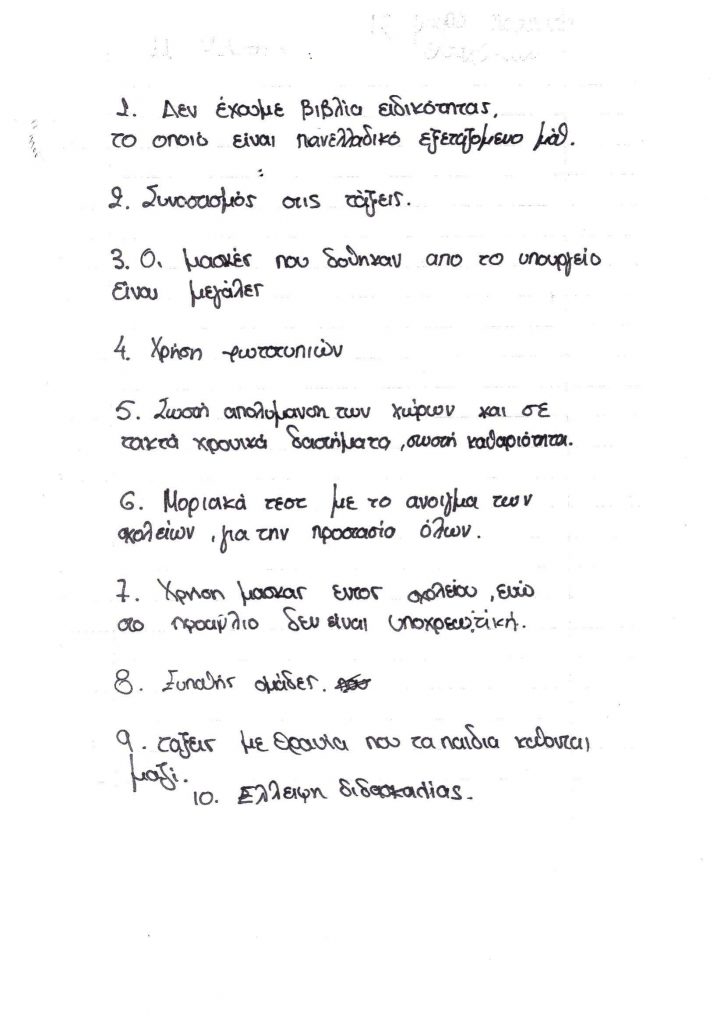 1. Δεν έχουμε βιβλία ειδικότητας,
το οποίο είναι πανελλαδικό εξεταζομενο μάθ.
2. Συνοστισμός στις τάξεις.
3. Οι μασκές που δοθηκαν απο το υπουργείο
είναι μεγάλες
4. Χρήση φωτοτυπιών
5. Σωστή απολυμανση των χώρων και σε
τακτά χρονικά διαστήματα, σωστή καθαριότητα.
6. Μοριακά τεστ με το ανοιγμα των
σχολείων, για την προστασία όλων.
7. Χρηση μασκας εντος σχολείου, ενώ
στο προαύλιο δεν είναι υποχρεωτική.
8. Ευπαθής ομάδες.
9. τάξεις με θρανία που τα παιδια καθονται
μαζί.
10. Ελλειψη διδασκαλίας.